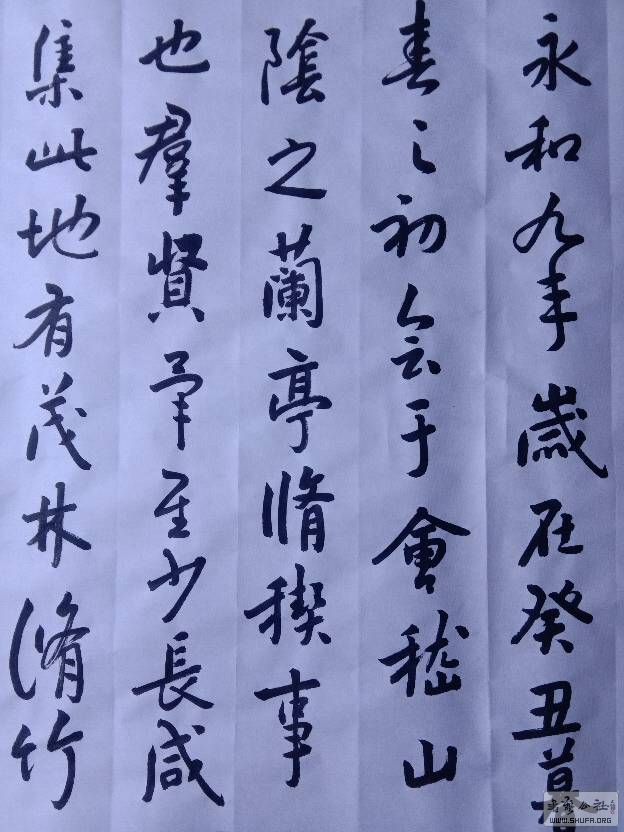 永和九年歲在癸丑暮
春之初会于會稽山
陰之蘭亭脩稧事
也羣賢畢至少長咸
集此地有茂林脩竹
WWW.SHUFA.ORG